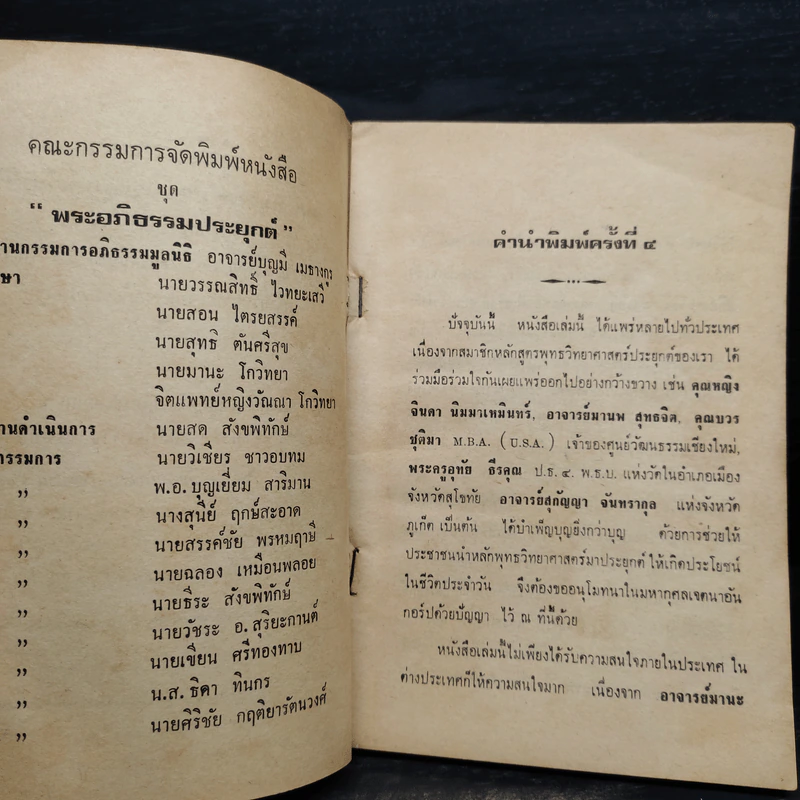 คณะกรรมการจัดพิมพ์หนังสือ
ชุด
“ พระอภิธรรมประยุกต์ ”
านกรรมการอภิธรรมมูลนิธิ อาจารย์บุญมี เมธางกูร
ษา นายวรรณสิทธิ์ ไวทยะเสวี
นายสอน ไตรยสรรค์
นายสุทธิ ตันศรีสุข
นายมานะ โกวิทยา
จิตแพทย์หญิงวัณณา โกวิทยา
านดำเนินการ นายสด สังขพิทักษ์
กรรมการ นายวิเชียร ชาวอบทม
„ พ.อ. บุญเยี่ยม สาริมาน
„ นางสุนีย์ ฤกษ์สะอาด
„ นายสรรค์ชัย พรหมฤาษี
„ นายฉลอง เหมือนพลอย
„ นายธีระ สังขพิทักษ์
„ นายวัชระ อ. สุริยะกานต์
„ นายเขียน ศรีทองทาบ
„ น.ส. ธิดา ทินกร
„ นายศิริชัย กฤติยารัตนวงศ์
คำนำพิมพ์ครั้งที่ ๔
ปัจจุบันนี้ หนังสือเล่มนี้ ได้แพร่หลายไปทั่วประเทศ
เนื่องจากสมาชิกหลักสูตรพุทธวิทยาศาสตร์ประยุกต์ของเรา ได้
ร่วมมือร่วมใจกันเผยแพร่ออกไปอย่างกว้างขวาง เช่น คุณหญิง
จินดา นิมมาเหมินทร์, อาจารย์มานพ สุทธจิต, คุณบวร
ชุติมา M.B.A. (U.S.A.) เจ้าของศูนย์วัฒนธรรมเชียงใหม่,
พระครูอุทัย ธีรคุณ ป.ธ. ๔. พ.ธ.บ. แห่งวัดในอำเภอเมือง
จังหวัดสุโขทัย อาจารย์สุกัญญา จันทรากุล แห่งจังหวัด
ภูเก็ต เป็นต้น ได้บำเพ็ญบุญยิ่งกว่าบุญ ด้วยการช่วยให้
ประชาชนนำหลักพุทธวิทยาศาสตร์มาประยุกต์ ให้เกิดประโยชน์
ในชีวิตประจำวัน จึงต้องขออนุโมทนาในมหากุศลเจตนาอัน
กอร์ปด้วยปัญญา ไว้ ณ ที่นี้ด้วย
หนังสือเล่มนี้ไม่เพียงได้รับความสนใจภายในประเทศ ใน
ต่างประเทศก็ให้ความสนใจมาก เนื่องจาก อาจารย์มานะ